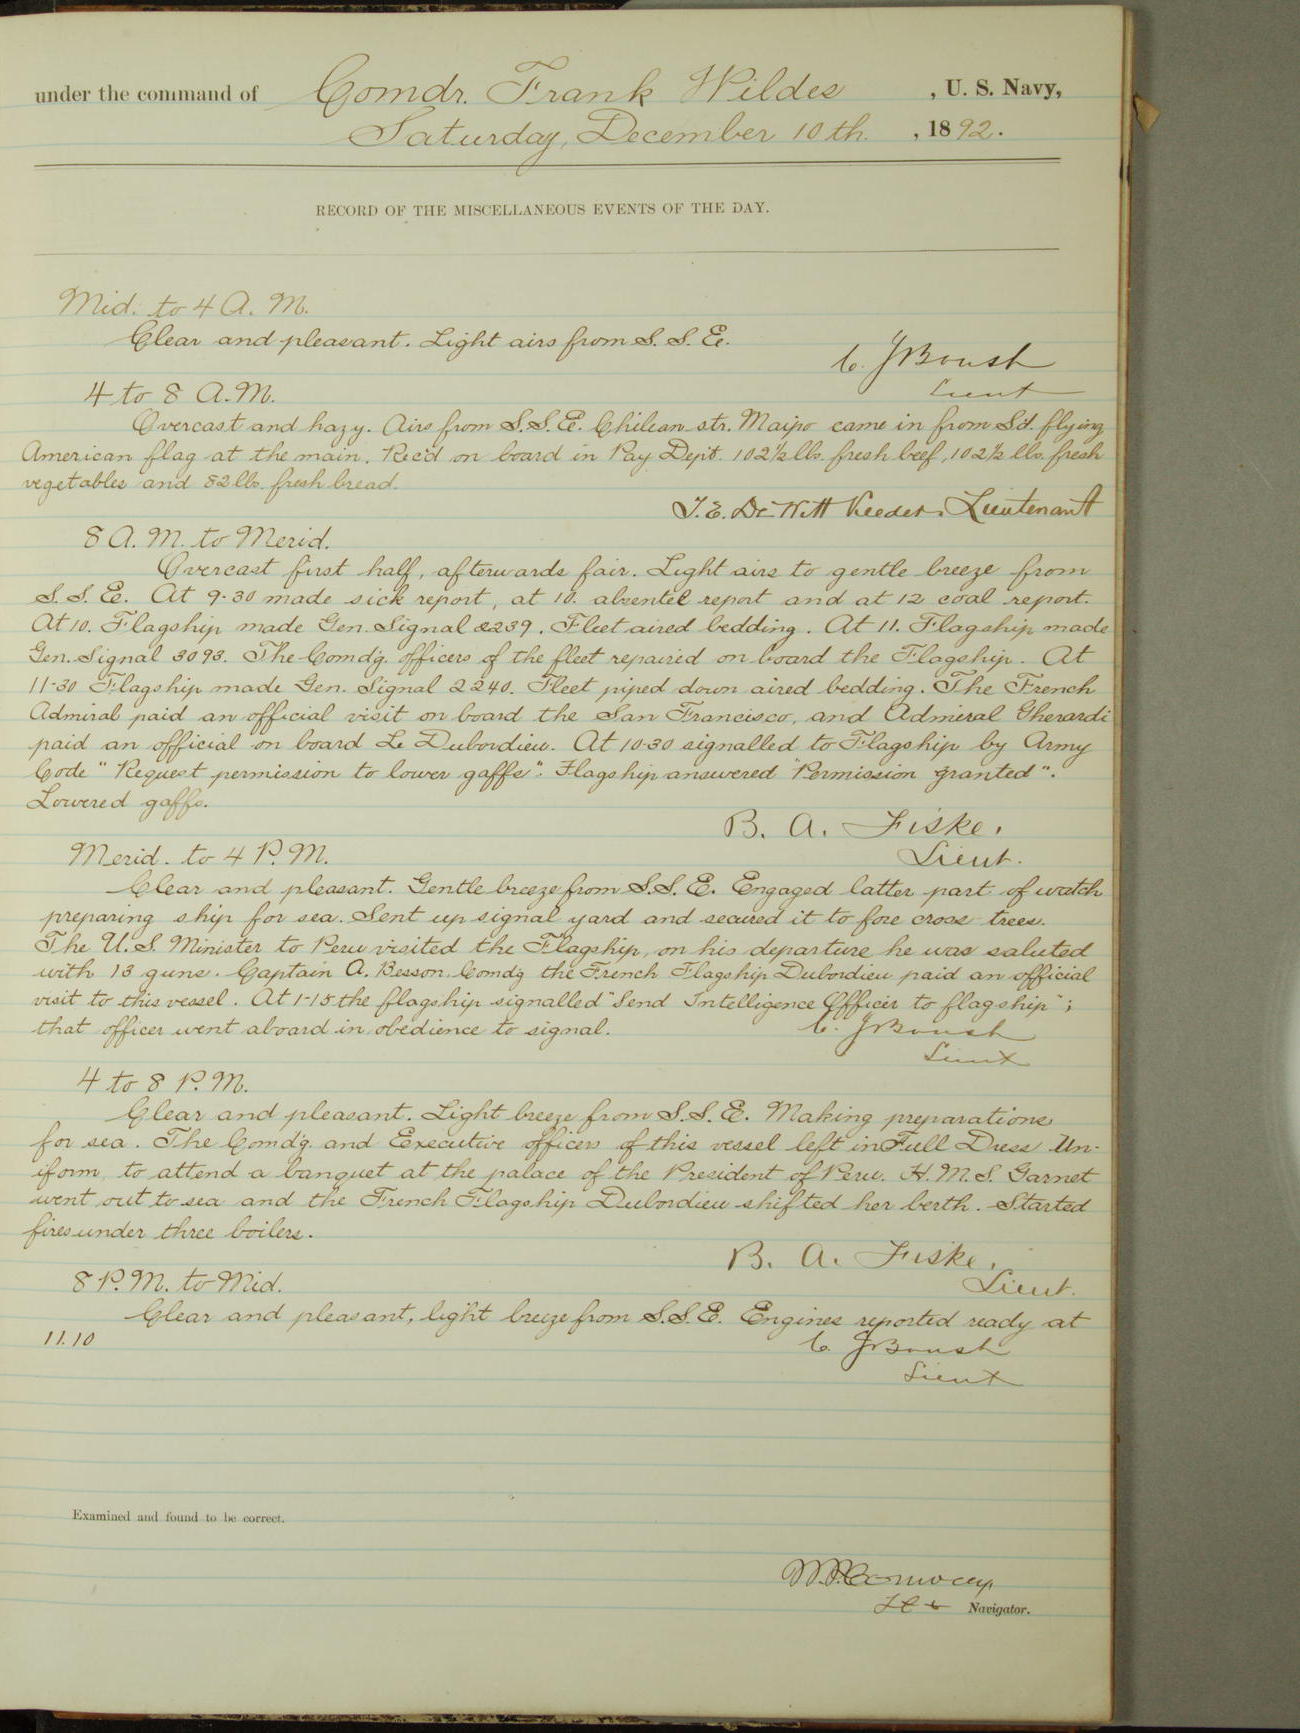 under the command of Comdr. Frank Wildes , U. S. Navy,
Saturday, December 10th. , 1892.
RECORD OF THE MISCELLANEOUS EVENTS OF THE DAY.
Mid. to 4 A. M.
Clear and pleasant. Light airs from S. S. E.
C. J Boush
Lieut
4 to 8 A.M.
Overcast and hazy. Airs from S.S.E. Chilean str. Maipo came in from Sd. flying
American flag at the main. Rec'd on board in Pay Dept. 102½ lbs. fresh beef, 102½ lbs. fresh
vegetables and 82 lbs. fresh bread.
T. E. De Witt Veeder, Lieutenant
8 A. M. to Merid.
Overcast first half, afterwards fair. Light airs to gentle breeze from
S. S. E. At 9-30 made sick report, at 10. absentee report and at 12 coal report.
At 10. Flagship made Gen. Signal 2239. Fleet aired bedding. At 11. Flagship made
Gen. Signal 3093. The Comd'g. officers of the fleet repaired on board the Flagship. At
11-30 Flagship made Gen. Signal 2240. Fleet piped down aired bedding. The French
Admiral paid an official visit on board the San Francisco, and Admiral Gherardi
paid an official on board Le Dubordieu. At 10-30 signalled to Flagship by Army
Code "Request permission to lower gaffs". Flagship answered "Permission granted".
Lowered gaffs.
B. A. Fiske.
Lieut.
Merid. to 4 P. M.
Clear and pleasant. Gentle breeze from S.S. E. Engaged latter part of watch
preparing ship for sea. Sent up signal yard and secured it to fore cross trees.
The U. S. Minister to Peru visited the Flagship, on his departure he was saluted
with 13 guns. Captain A. Besson Comdg the French Flagship Dubordieu paid an official
visit to this vessel. At 1-15 the flagship signalled "Send Intelligence Officer to flagship";
that officer went aboard in obedience to signal.
C. J Boush
Lieut
4 to 8 P. M.
Clear and pleasant. Light breeze from S.S. E. Making preparations
for sea. The Comd'g. and Executive officers of this vessel left in Full Dress Un-
iform, to attend a banquet at the palace of the President of Peru. H. M. S. Garnet
went out to sea and the French Flagship Dubordieu shifted her berth. Started
fires under three boilers.
B. A. Fiske,
Lieut.
8 P. M. to Mid.
Clear and pleasant, light breeze from S.S.E. Engines reported ready at
11.10
C. J Boush
Lieut
Examined and found to be correct.
Conway
Navigator.